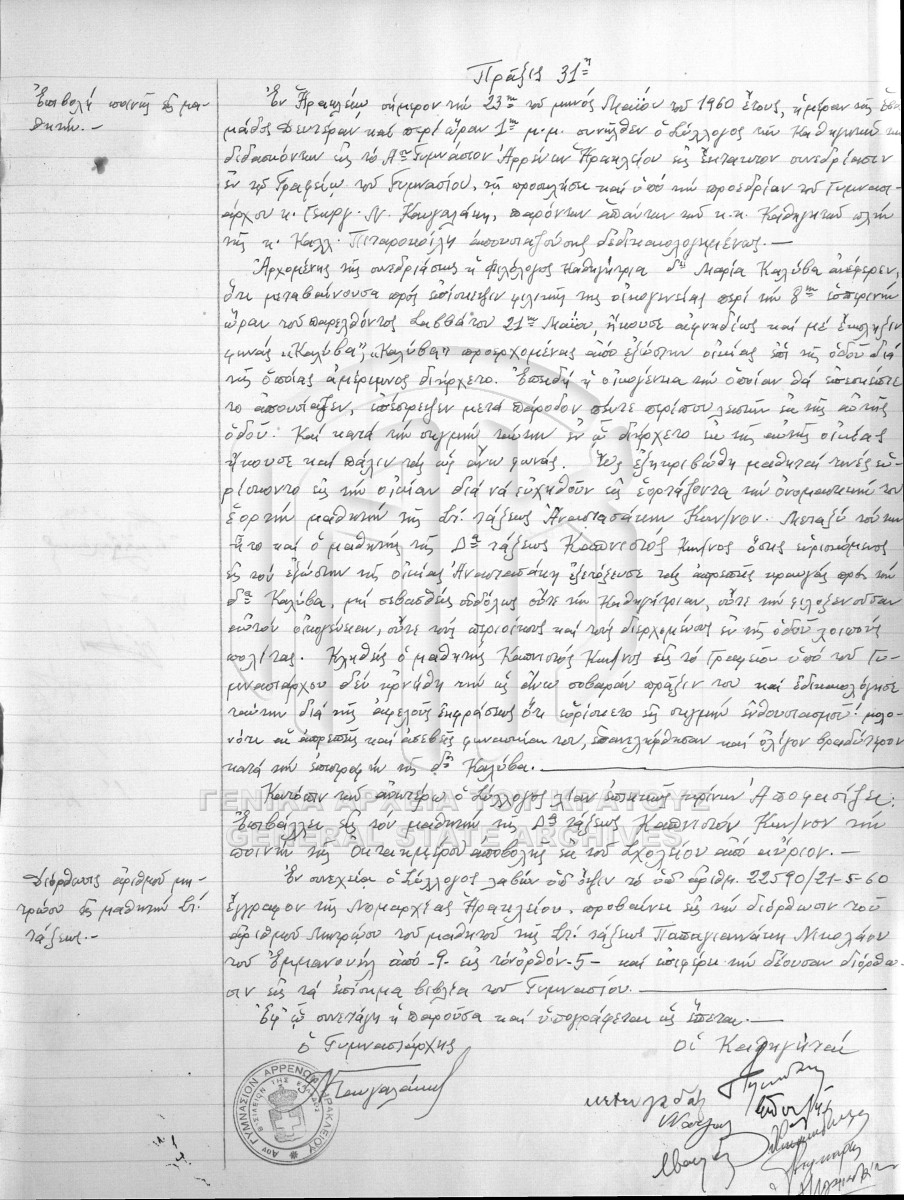 Πρᾶξις 31η
Ἐπιβολή ποινῆς εἰς μα-
θητήν. -
Ἐν Ἡρακλείῳ σήμερον τήν 23ην τοῦ μηνός Μαΐου τοῦ 1960 ἔτους, ἡμέραν τῆς ἑβδο-
μάδος Δευτέραν καί περί ὥραν 1ην μ.μ. συνῆλθεν ὁ Σύλλογος τῶν Καθηγητῶν τῶν
διδασκόντων εἰς τό Αον Γυμνάσιον Ἀρρένων Ἡρακλείου εἰς ἔκτακτον συνεδρίασιν
ἐν τῷ Γραφείῳ τοῦ Γυμνασίου, τῇ προσκλήσει καί ὑπό τήν προεδρίαν τοῦ Γυμνασι-
άρχου κ. Γεωργ. Ν. Καυγαλάκη, παρόντων ἁπάντων τῶν κ.κ. Καθηγητῶν πλήν
τῆς κ. Καλλ. Πιταροκοίλη ἀπουσιαζούσης δεδικαιολογημένως. -
Ἀρχομένης τῆς συνεδριάσεως ἡ φιλόλογος καθηγήτρια δνίς Μαρία Καλύβα ἀνέφερεν,
ὅτι μεταβαίνουσα πρός ἐπίσκεψιν φιλικῆς της οἰκογενείας περί τήν 8ην ἑσπερινήν
ὥραν τοῦ παρελθόντος Σαββάτου 21ην Μαΐου, ἤκουσε αἰφνηδίως καί μέ ἔκπληξιν
φωνάς «Καλύβα», «Καλύβα» προερχομένας ἀπό ἐξώστην οἰκίας ἐπί τῆς ὁδοῦ διά
τῆς ὁποίας ἀμέριμνος διήρχετο. Ἐπειδή ἡ οἰκογένεια τήν ὁποίαν θά ἐπεσκέπτε
το ἀπουσίαζεν, ἐπέστρεψεν μετά πάροδον πέντε περίπου λεπτῶν ἐκ τῆς αὐτῆς
ὁδοῦ. Καί κατά τήν στιγμήν ταύτην ἐν ᾧ διήρχετο ἐκ τῆς αὐτῆς οἰκίας
ἤκουσε καί πάλιν τάς ὡς ἄνω φωνάς. Ὡς ἐξηκριβώθη μαθηταί τινές εὑ-
ρίσκοντο εἰς τήν οἰκίαν διά νά εὐχηθοῦν εἰς ἑορτάζοντα τήν ὀνομαστικήν του
ἑορτήν μαθητήν τῆς Στ. τάξεως Ἀναστασάκην Κων/νον. Μεταξύ τούτων
ἦτο καί ὁ μαθητής τῆς Δης τάξεως Καπνιστός Κων/νος ὅστις εὑρισκόμενος
εἰς τόν ἐξώστην τῆς οἰκίας Ἀναστασάκη ἐξετόξευσε τάς ἀπρεπεῖς κραυγάς πρός τήν
δνίδα Καλύβα, μή σεβασθείς οὐδόλως οὔτε τήν καθηγήτριαν, οὔτε τήν φιλοξενοῦσαν
αὐτόν οἰκογένειαν, οὔτε τούς περιοίκους καί τούς διερχομένους ἐν τῇ ὁδῷ λοιπούς
πολίτας. Κληθείς ὁ μαθητής Καπνιστός Κων/νος εἰς τό Γραφεῖον ὑπό τοῦ Γυ-
μνασιάρχου δέν ἠρνήθη τήν ὡς ἄνω σοβαράν πρᾶξίν του καί ἐδικαιολόγησε
ταύτην διά τῆς ἀφελοῦς ἐκφράσεως ὅτι εὑρίσκετο εἰς στιγμήν ἐνθουσιασμοῦ! μολο-
νότι αἱ ἀπρεπεῖς καί ἀσεβεῖς φωνασκίαι του, ἐπανελήφθησαν καί ὀλίγον βραδύτερον
κατά τήν ἐπιστροφήν τῆς δνίδος Καλύβα.
Κατόπιν τῶν ἀνωτέρω ὁ Σύλλογος λίαν ἐπιεικῶς κρίνων Ἀποφασίζει:
Ἐπιβάλλει εἰς τόν μαθητήν τῆς Δης τάξεως Καπνιστόν Κων/νον τήν
ποινήν τῆς ὀκταημέρου ἀποβολῆς ἐκ τοῦ Σχολείου ἀπό αὔριον. -
Διόρθωσις ἀριθμοῦ μη-
τρώου εἰς μαθητήν Στ.
τάξεως. -
Ἐν συνεχείᾳ ὁ Σύλλογος λαβών ὑπ' ὄψιν τό ὑπ' ἀριθμ. 22590/21-5-60
ἔγγραφον τῆς Νομαρχίας Ἡρακλείου, προβαίνει εἰς τήν διόρθωσιν τοῦ
ἀριθμοῦ Μητρώου τοῦ μαθητοῦ τῆς Στ. τάξεως Παπαγιαννάκη Νικολάου
τοῦ Ἐμμανουήλ ἀπό -9- εἰς τό ὀρθόν -5- καί ἐπιφέρει τήν δέουσαν διόρθω-
σιν εἰς τά ἐπίσημα βιβλία τοῦ Γυμνασίου.
Ἐφ' ᾧ συνετάγη ἡ παροῦσα καί ὑπογράφεται ὡς ἕπεται. -
Ὁ Γυμνασιάρχης
Οἱ Καθηγηταί
ΓΕΝΙΚΑ ΑΡΧΕΙΑ ΤΟΥ ΚΡΑΤΟΥΣ
GENERAL STATE ARCHIVES
Αον ΓΥΜΝΑΣΙΟΝ ΑΡΡΕΝΩΝ ΗΡΑΚΛΕΙΟΥ
ΒΑΣΙΛΕΙΟΝ ΤΗΣ ΕΛΛΑΔΟΣ